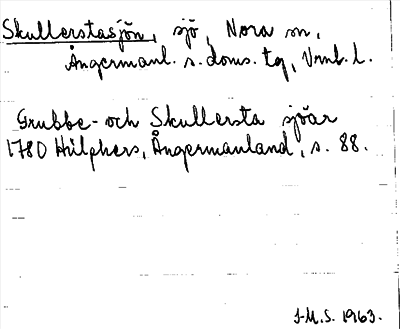 Skullerstasjön, sjö, Nora sn,
Ångermanl. s. doms. tg, Vnrl. l.
Grubbe- och Skullersta sjöar
1780 Hülphers, Ångermanland, s. 88.
I-M.S. 1963.